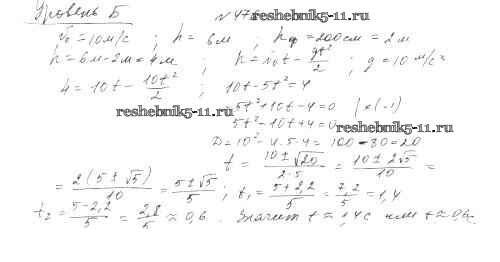 Уровень Б
№ 47 www.reshebnik5-11.ru
v₀ = 10 м/с ; h = 6 м ; hф = 200 см = 2 м
h = 6 м - 2 м = 4 м ; h = v₀t - gt²/2 ; g = 10 м/с²
4 = 10t - 10t²/2 ; 10t - 5t² = 4
www.reshebnik5-11.ru
-5t² + 10t - 4 = 0 | ×(-1)
5t² - 10t + 4 = 0
www.reshebnik5-11.ru
D = 10² - 4·5·4 = 100 - 80 = 20
t = (10 ± √20)/(2·5) = (10 ± 2√5)/10 =
= 2(5 ± √5)/10 = (5 ± √5)/5 ; t₁ = (5 + 2,2)/5 = 7,2/5 = 1,4
t₂ = (5 - 2,2)/5 = 2,8/5 ≈ 0,6. Значит t ≈ 1,4 с или t ≈ 0,6